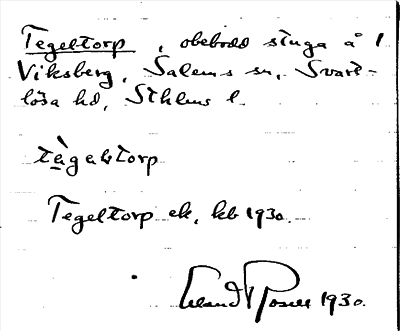 Tegeltorp, obebodd stuga å 1
Viksberg, Salems sn, Svart-
lösa hd, Sthlms l.
tàgəltorp
Tegeltorp ek, kb 1930.
Erland Rosell 1930.